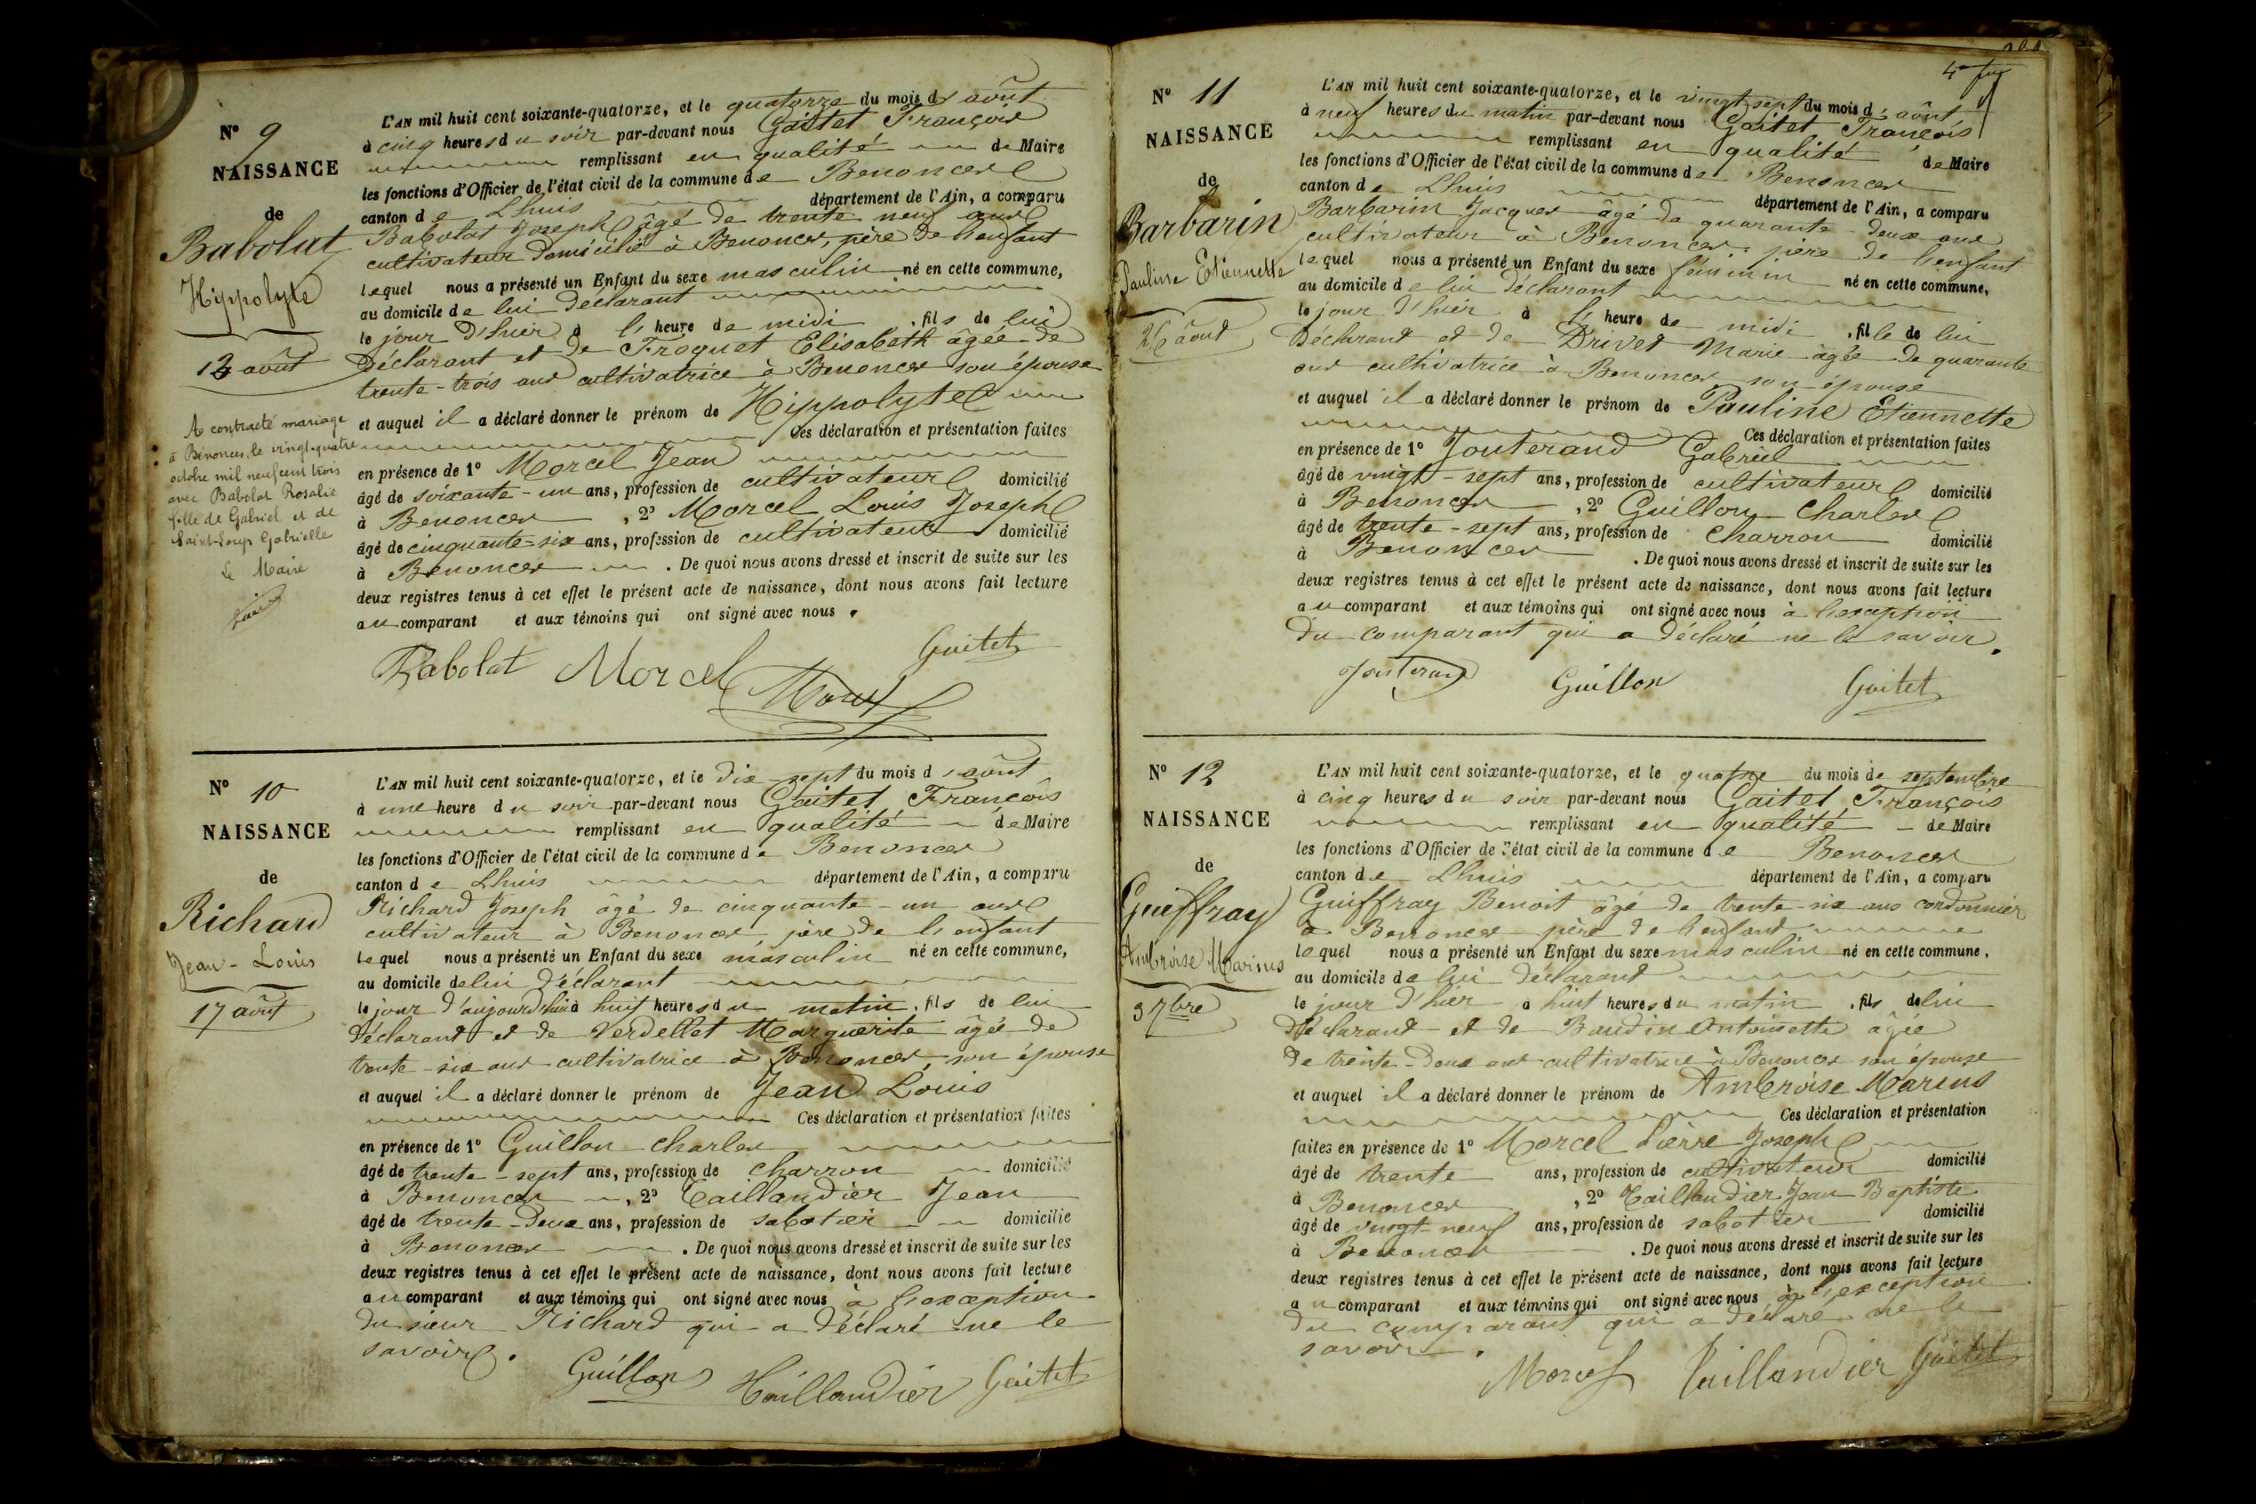 N° 9
NAISSANCE
de
Babolat
Hippolyte
13 août
A contracté mariage
à Bénonces, le vingt-quatre
octobre mil neuf cent trois
avec Babolat Rosalie
fille de Gabriel et de
Saint-Loup Gabrielle
Le Maire
L'AN mil huit cent soixante-quatorze, et le quatorze du mois d'août
à cinq heures du soir par-devant nous Gaitet François
remplissant en qualité de Maire
les fonctions d'Officier de l'état civil de la commune de Benonces
canton de Lhuis département de l'Ain, a comparu
Babolat Joseph âgé de trente neuf ans
cultivateur domicilié à Benonces, père de l'enfant
lequel nous a présenté un Enfant du sexe masculin né en cette commune,
au domicile de lui déclarant
le jour d'hier à l' heure de midi, fils de lui
déclarant et de Froquet Elisabeth âgée de
trente-trois ans cultivatrice à Benonces son épouse
et auquel il a déclaré donner le prénom de Hippolyte
Ces déclaration et présentation faites
en présence de 1° Morcel Jean
âgé de soixante-un ans, profession de cultivateur domicilié
à Benonces, 2° Morcel Louis Joseph
âgé de cinquante-six ans, profession de cultivateur domicilié
à Benonces. De quoi nous avons dressé et inscrit de suite sur les
deux registres tenus à cet effet le présent acte de naissance, dont nous avons fait lecture
au comparant et aux témoins qui ont signé avec nous.
Babolat Morcel Morcel Gaitet
N° 10
NAISSANCE
de
Richard
Jean-Louis
17 août
L'AN mil huit cent soixante-quatorze, et le dix-sept du mois d'août
à une heure du soir par-devant nous Gaitet François
remplissant en qualité de Maire
les fonctions d'Officier de l'état civil de la commune de Benonces
canton de Lhuis département de l'Ain, a comparu
Richard Joseph âgé de cinquante-un ans
cultivateur à Benonces père de l'enfant
lequel nous a présenté un Enfant du sexe masculin né en cette commune,
au domicile de lui déclarant
le jour d'aujourd'hui à huit heures du matin, fils de lui
déclarant et de Verdellet Marguerite âgée de
trente-six ans cultivatrice à Benonces, son épouse
et auquel il a déclaré donner le prénom de Jean Louis
Ces déclaration et présentation faites
en présence de 1° Guillon Charles
âgé de trente-sept ans, profession de charron domicilié
à Benonces, 2° Taillandier Jean
âgé de trente-deux ans, profession de sabotier domicilié
à Benonces. De quoi nous avons dressé et inscrit de suite sur les
deux registres tenus à cet effet le présent acte de naissance, dont nous avons fait lecture
au comparant et aux témoins qui ont signé avec nous à l'exception
du sieur Richard qui a déclaré ne le
savoir.
Guillon Taillandier Gaitet
N° 11
NAISSANCE
de
Barbarin
Pauline Etiennette
26 août
L'AN mil huit cent soixante-quatorze, et le vingt sept du mois d'août
à neuf heures du matin par-devant nous Gaitet François
remplissant en qualité de Maire
les fonctions d'Officier de l'état civil de la commune de Benonces
canton de Lhuis département de l'Ain, a comparu
Barbarin Jacques âgé de quarante-deux ans
cultivateur à Benonces, père de l'enfant
lequel nous a présenté un Enfant du sexe féminin né en cette commune,
au domicile de lui déclarant
le jour d'hier à l' heure de midi, fille de lui
déclarant et de Drivet Marie âgée de quarante
ans cultivatrice à Benonces son épouse
et auquel il a déclaré donner le prénom de Pauline Etiennette
Ces déclaration et présentation faites
en présence de 1° Jouterand Gabriel
âgé de vingt-sept ans, profession de cultivateur domicilié
à Benonces, 2° Guillon Charles
âgé de trente-sept ans, profession de Charron domicilié
à Benonces. De quoi nous avons dressé et inscrit de suite sur les
deux registres tenus à cet effet le présent acte de naissance, dont nous avons fait lecture
au comparant et aux témoins qui ont signé avec nous à l'exception
du comparant qui a déclaré ne le savoir.
Jouterand Guillon Gaitet
N° 12
NAISSANCE
de
Guiffray
Ambroise Marius
3 7bre
L'AN mil huit cent soixante-quatorze, et le quatre du mois de septembre
à cinq heures du soir par-devant nous Gaitet François
remplissant en qualité de Maire
les fonctions d'Officier de l'état civil de la commune de Benonces
canton de Lhuis département de l'Ain, a comparu
Guiffray Benoit âgé de trente-six ans cordonnier
à Benonces père de l'enfant
lequel nous a présenté un Enfant du sexe masculin né en cette commune,
au domicile de lui déclarant
le jour d'hier à huit heures du matin, fils de lui
déclarant et de Baudin Antoinette âgée
de trente-deux ans cultivatrice à Benonces son épouse
et auquel il a déclaré donner le prénom de Ambroise Marius
Ces déclaration et présentation
faites en présence de 1° Morcel Pierre Joseph
âgé de trente ans, profession de cultivateur domicilié
à Benonces, 2° Taillandier Jean Baptiste
âgé de vingt neuf ans, profession de sabotier domicilié
à Benonces. De quoi nous avons dressé et inscrit de suite sur les
deux registres tenus à cet effet le présent acte de naissance, dont nous avons fait lecture
au comparant et aux témoins qui ont signé avec nous à l'exception
du comparant qui a déclaré ne le
savoir.
Morcel Taillandier Gaitet